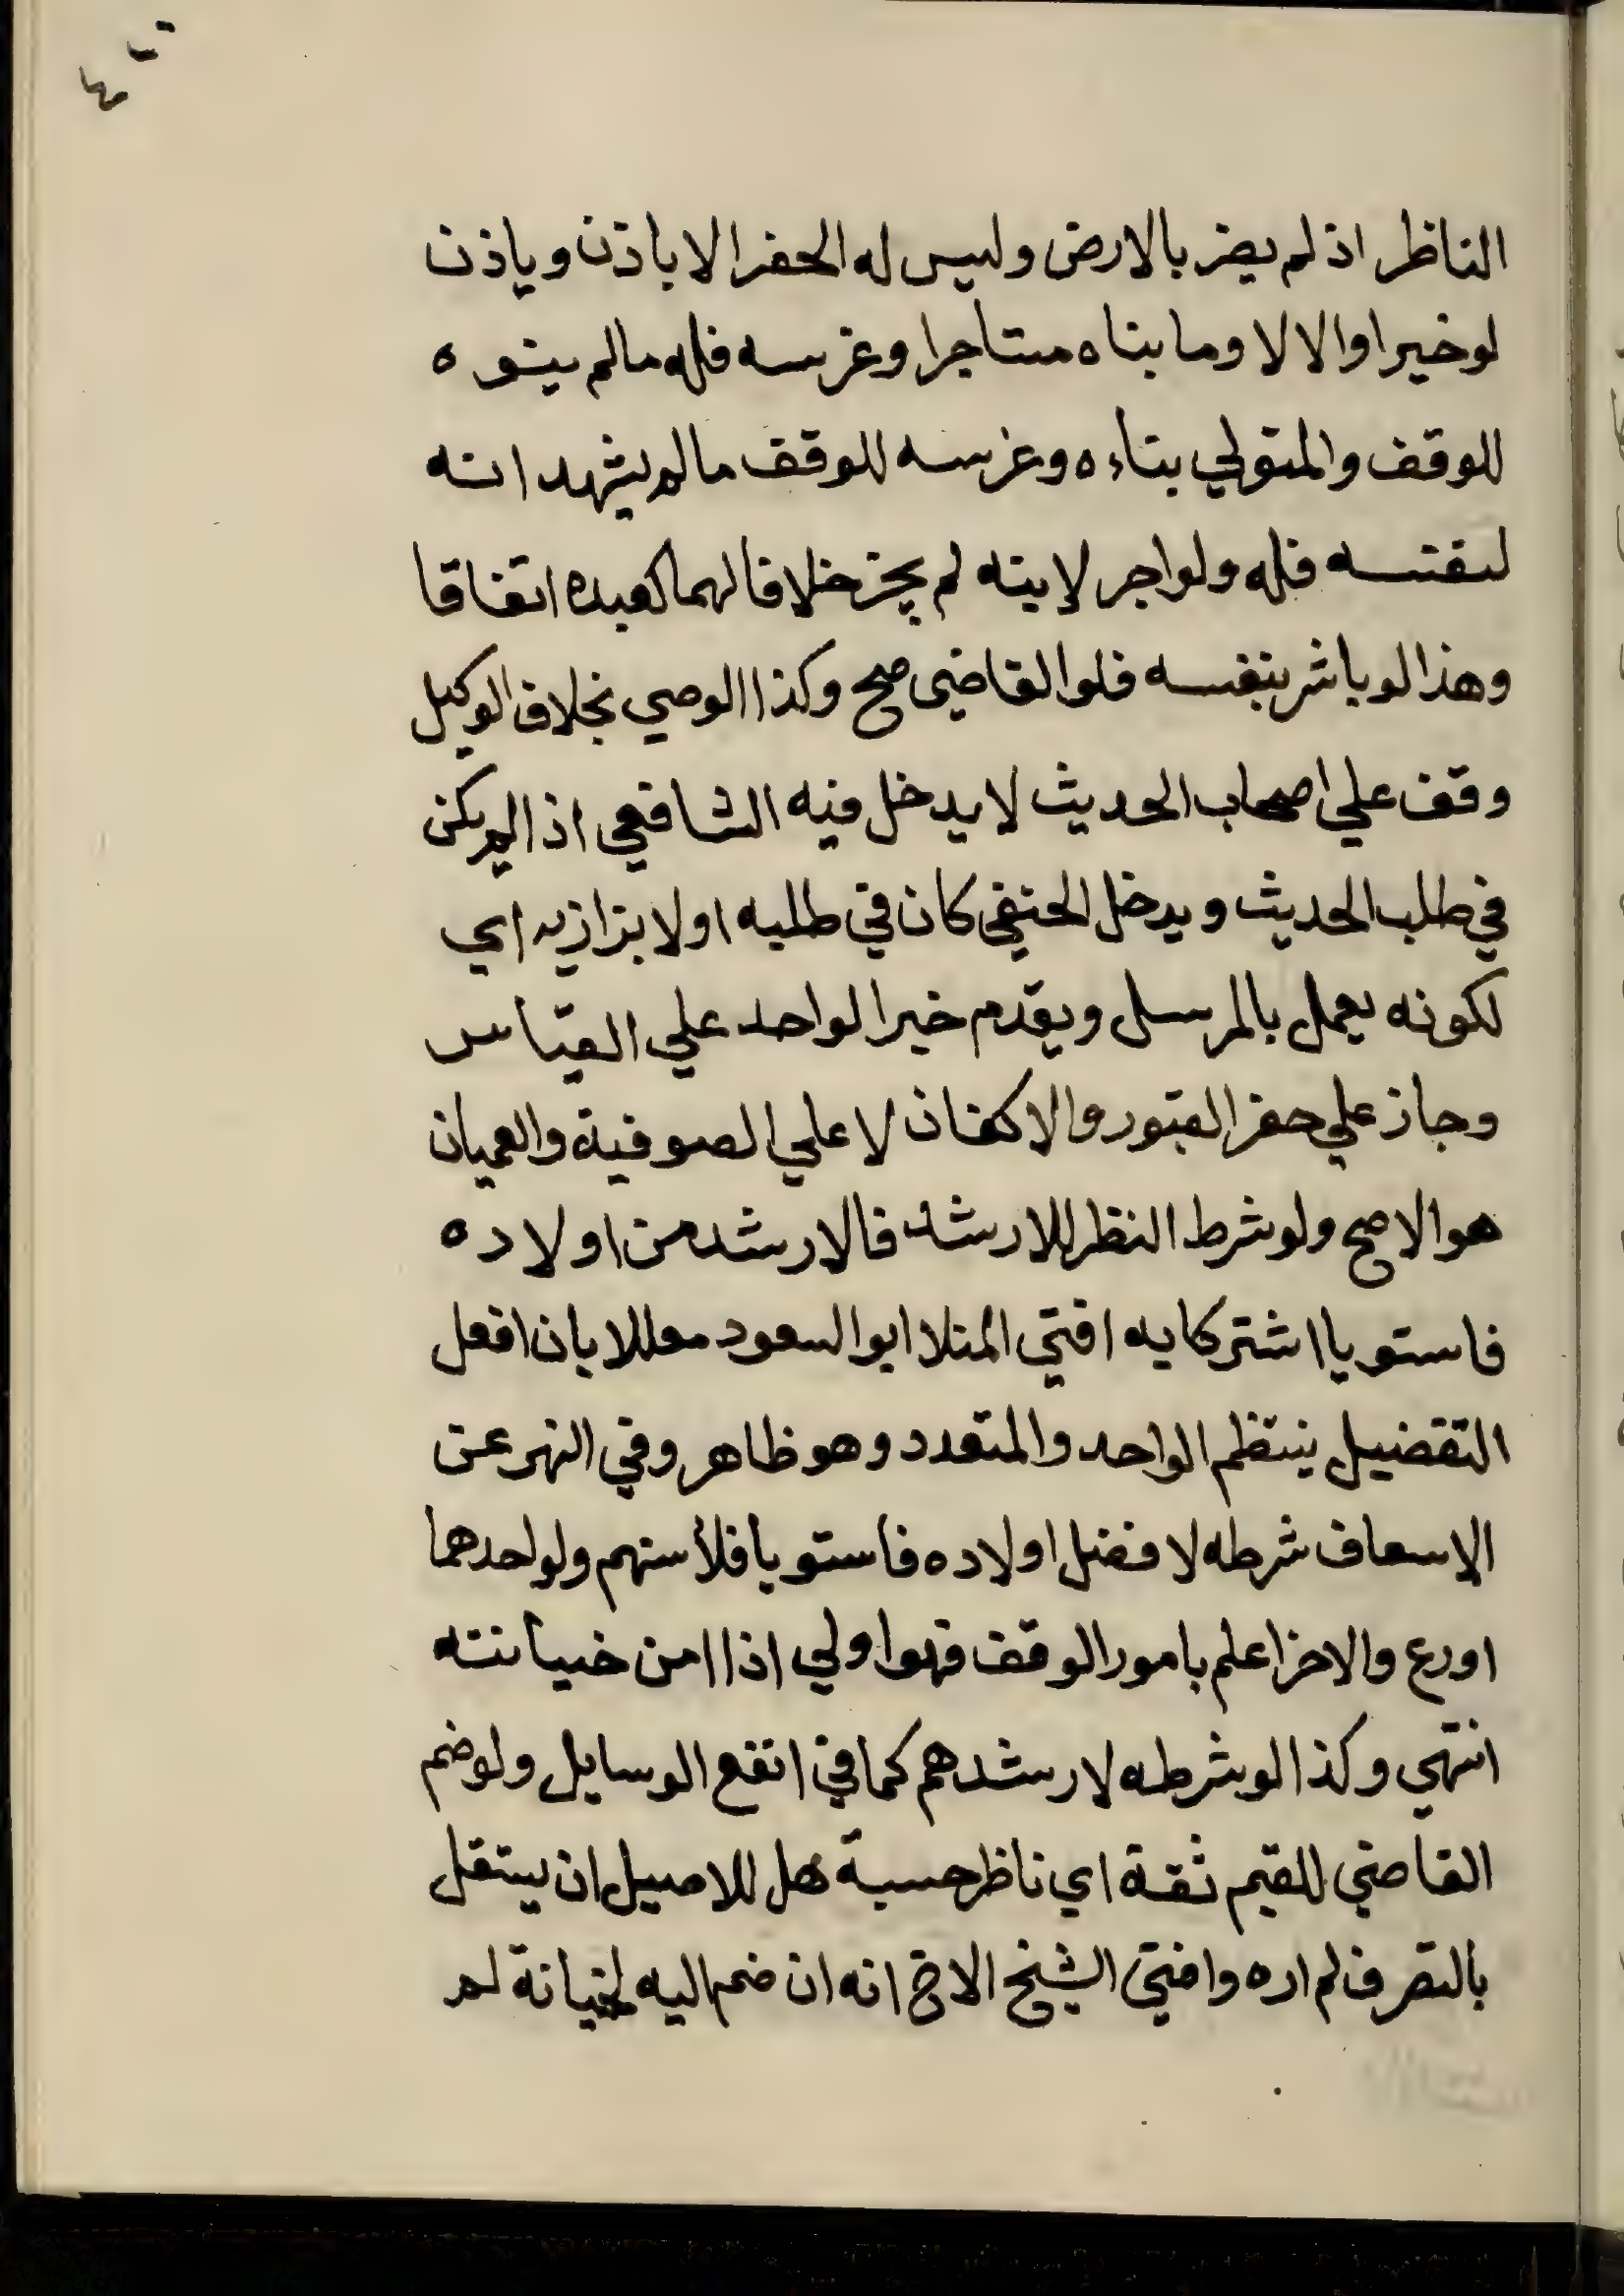 الناظر اذ لم يضر بالارض وليس له الحفر الا باذن وياذن
لو خيرا والا لا وما بناه مستاجرا وغرسه فله مالم ينوه
للوقف والمتولي بناءه وغرسه للوقف مالم يشهد انه
لنفسه فله ولو اجر لابنه لم يجز خلافا لهما كعبده اتفاقا
وهذا لو باشر بنفسه فلو القاضي صح وكذا الوصي بخلاف الوكيل
وقف علي اصحاب الحديث لا يدخل فيه الشافعي اذا لم يكن
في طلب الحديث ويدخل الحنفي كان في طلبه اولا بزازيه اي
لكونه يعمل بالمرسل ويقدم خبر الواحد علي القياس
وجاز علي حفر القبور والاكفان لا علي الصوفية والعميان
هو الاصح ولو شرط النظر للارشد فالارشد من اولاده
فاستويا اشتركا به افتي المنلا ابو السعود معللا بان افعل
التفضيل ينتظم الواحد والمتعدد وهو ظاهر وفي النهر عن
الاسعاف شرطه لافضل اولاده فاستويا فلأسنهم ولو احدهما
اورع والاخر اعلم بامور الوقف فهو اولي اذا امن خيانته
انتهي وكذا لو شرطه لارشدهم كما في انفع الوسايل ولو ضم
القاضي للقيم ثقة اي ناظر حسبة هل للاصيل ان يستقل
بالتصرف لم اره وافتي الشيخ الاخ انه ان ضم اليه لخيانة لم